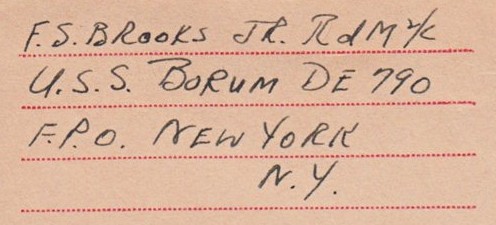 F.S. BROOKS JR. RdM 2/C
U.S.S. BORUM DE 790
F.P.O. NEW YORK
N.Y.